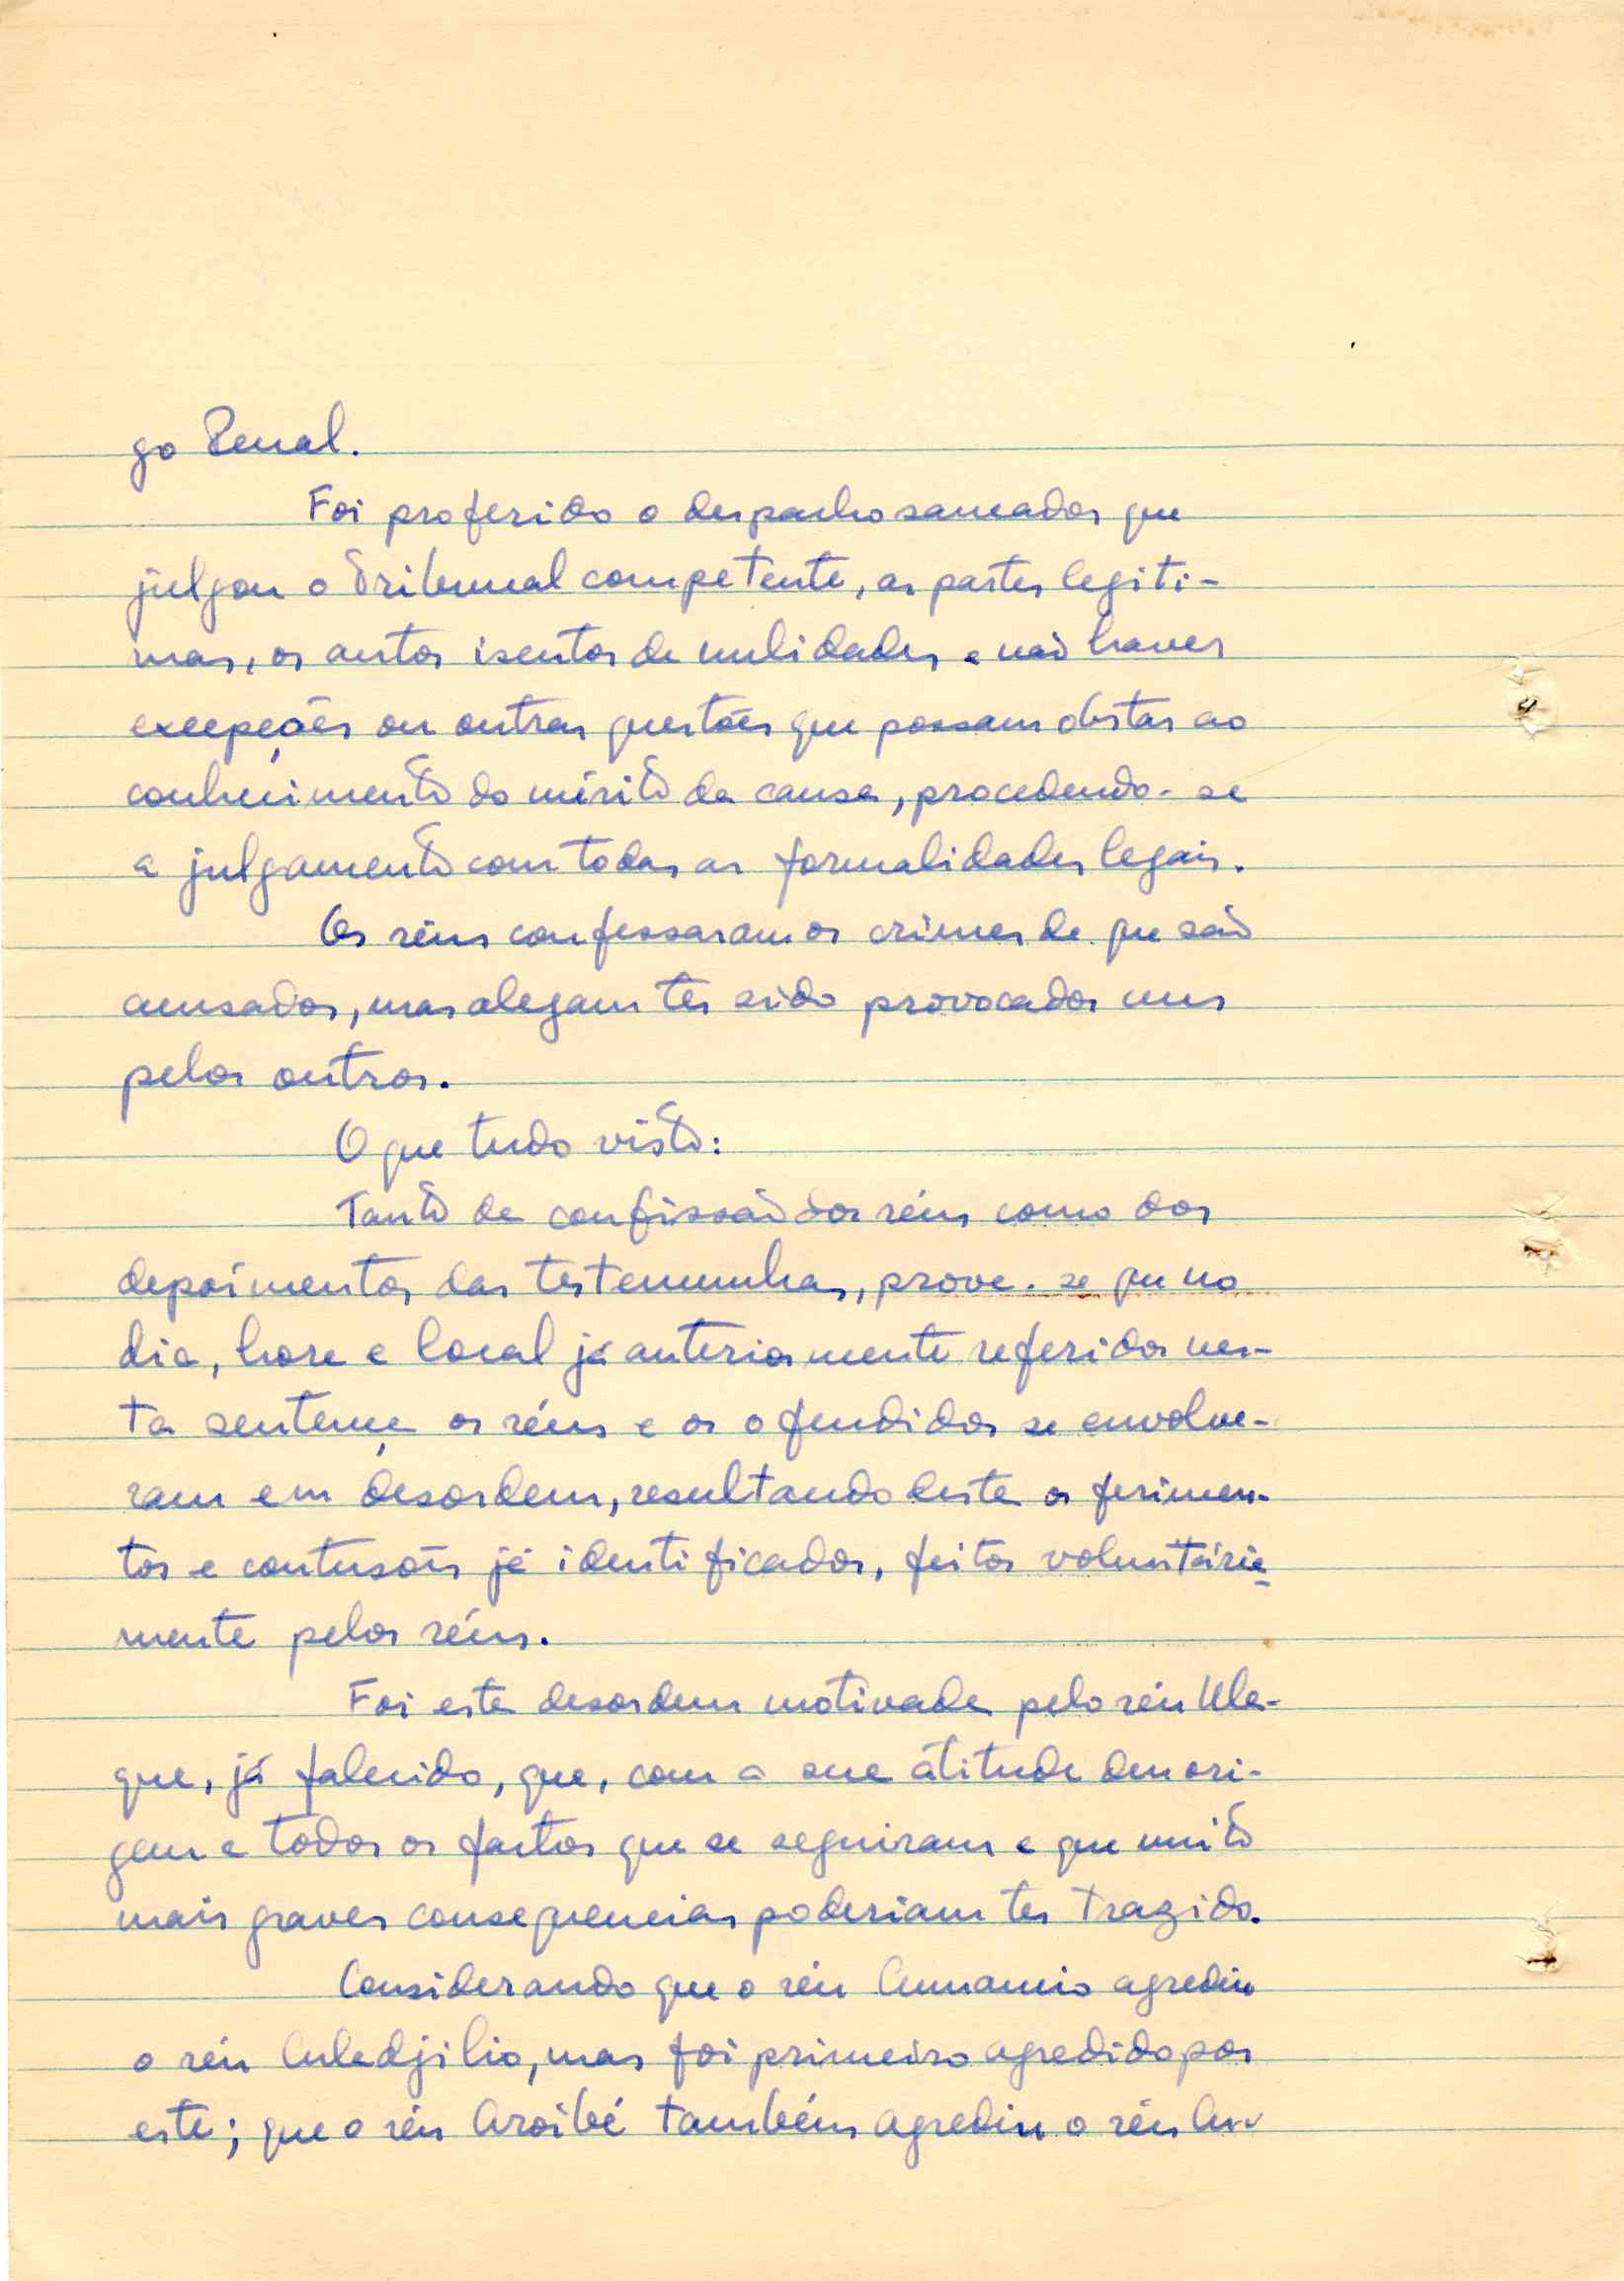 go Penal.
Foi proferido o despacho saneador que
julgou o Tribunal competente, as partes legiti-
mas, os autos isentos de nulidades e não haver
excepções ou outras questões que possam obstar ao
conhecimento do mérito da causa, procedendo-se
a julgamento com todas as formalidades legais.
Os réus confessaram os crimes de que são
acusados, mas alegam ter sido provocados uns
pelos outros.
O que tudo visto:
Tanto da confissão dos réus como dos
depoimentos das testemunhas, prova-se que no
dia, hora e local já anteriormente referidos nes-
ta sentença os réus e os ofendidos se envolve-
ram em desordem, resultando desta os ferimen-
tos e contusões já identificados, feitos voluntária-
mente pelos réus.
Foi esta desordem motivada pelo réu Ula-
que, já falecido, que, com a sua atitude deu ori-
gem a todos os factos que se seguiram e que muito
mais graves consequencias poderiam ter trazido.
Considerando que o réu agrediu
o réu Culadjilio, mas foi primeiro agredido por
este; que o réu Aroibé também agrediu o réu